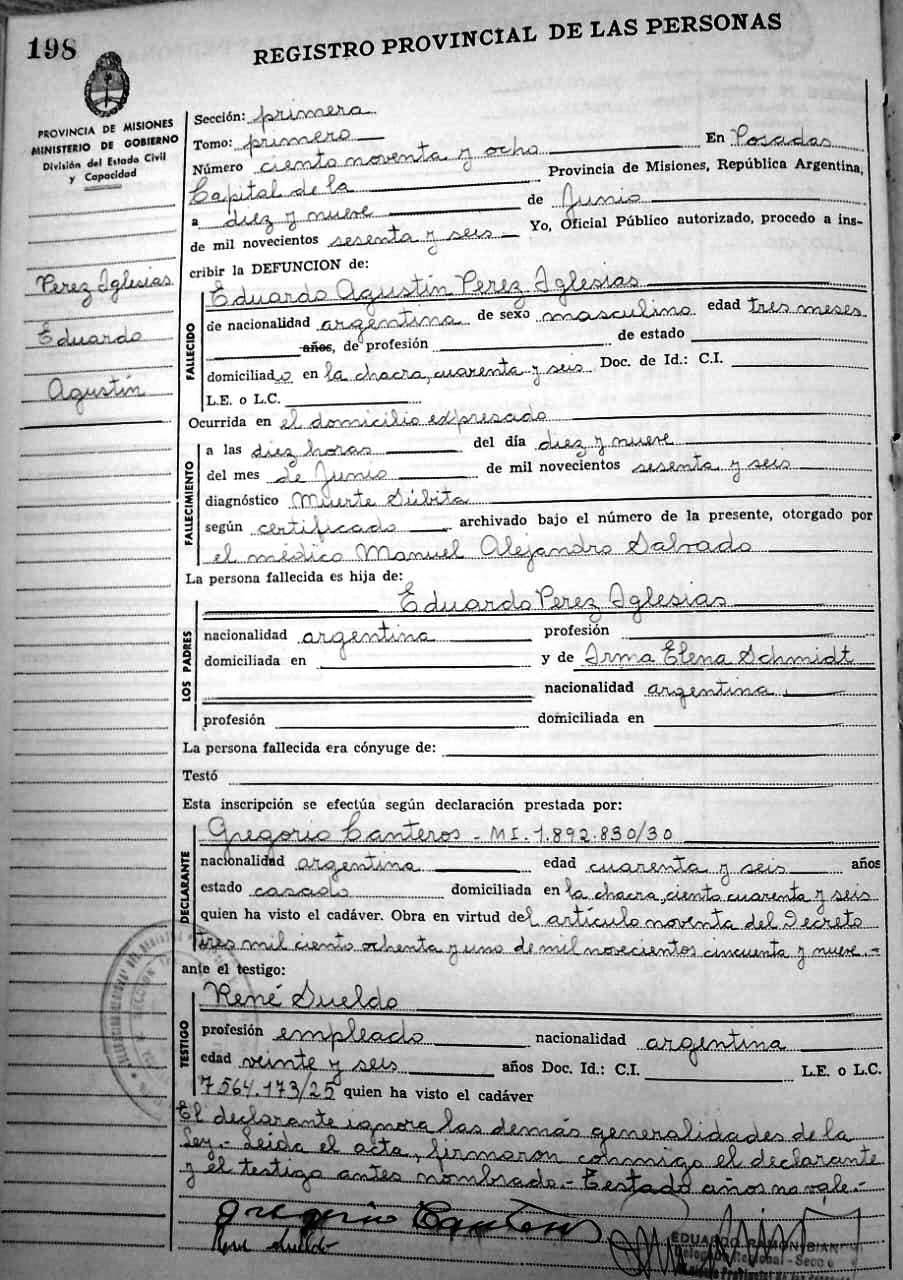 198
REGISTRO PROVINCIAL DE LAS PERSONAS
PROVINCIA DE MISIONES
MINISTERIO DE GOBIERNO
División del Estado Civil
y Capacidad
Perez Iglesias
Eduardo
Agustín
Sección: primera
Tomo: primero
Número ciento noventa y ocho En Posadas
Capital de la Provincia de Misiones, República Argentina,
a diez y nueve de Junio
de mil novecientos sesenta y seis Yo, Oficial Público autorizado, procedo a ins-
cribir la DEFUNCION de:
FALLECIDO
Eduardo Agustín Perez Iglesias
de nacionalidad argentina de sexo masculino edad tres meses
años, de profesión de estado
domiciliado en la chacra, cuarenta y seis Doc. de Id.: C.I.
L.E. o L.C.
Ocurrida en el domicilio expresado
FALLECIMIENTO
a las diez horas del día diez y nueve
del mes de Junio de mil novecientos sesenta y seis
diagnóstico Muerte Súbita
según certificado archivado bajo el número de la presente, otorgado por
el médico Manuel Alejandro Salvado
La persona fallecida es hija de:
LOS PADRES
Eduardo Perez Iglesias
nacionalidad argentina profesión
domiciliada en y de Irma Elena Schmidt
nacionalidad argentina
profesión domiciliada en
La persona fallecida era cónyuge de:
Testó
Esta inscripción se efectúa según declaración prestada por:
DECLARANTE
Gregorio Canteros - MI. 1.892.830/30
nacionalidad argentina edad cuarenta y seis años
estado casado domiciliada en la chacra, ciento cuarenta y seis
quien ha visto el cadáver. Obra en virtud del artículo noventa del Decreto
tres mil ciento ochenta y uno de mil novecientos cincuenta y nueve.-
ante el testigo:
TESTIGO
René Sueldo
profesión empleado nacionalidad argentina
edad veinte y seis años Doc. Id.: C.I. L.E. o L.C.
7564.173/25 quien ha visto el cadáver
El declarante ignora las demás generalidades de la
Ley.- Leída el acta, firmaron conmigo el declarante
y el testigo antes nombrado.- Testado años no vale.-
Gregorio Canteros
René Sueldo
EDUARDO RAMON BIAN
Delegado Regional - Secc